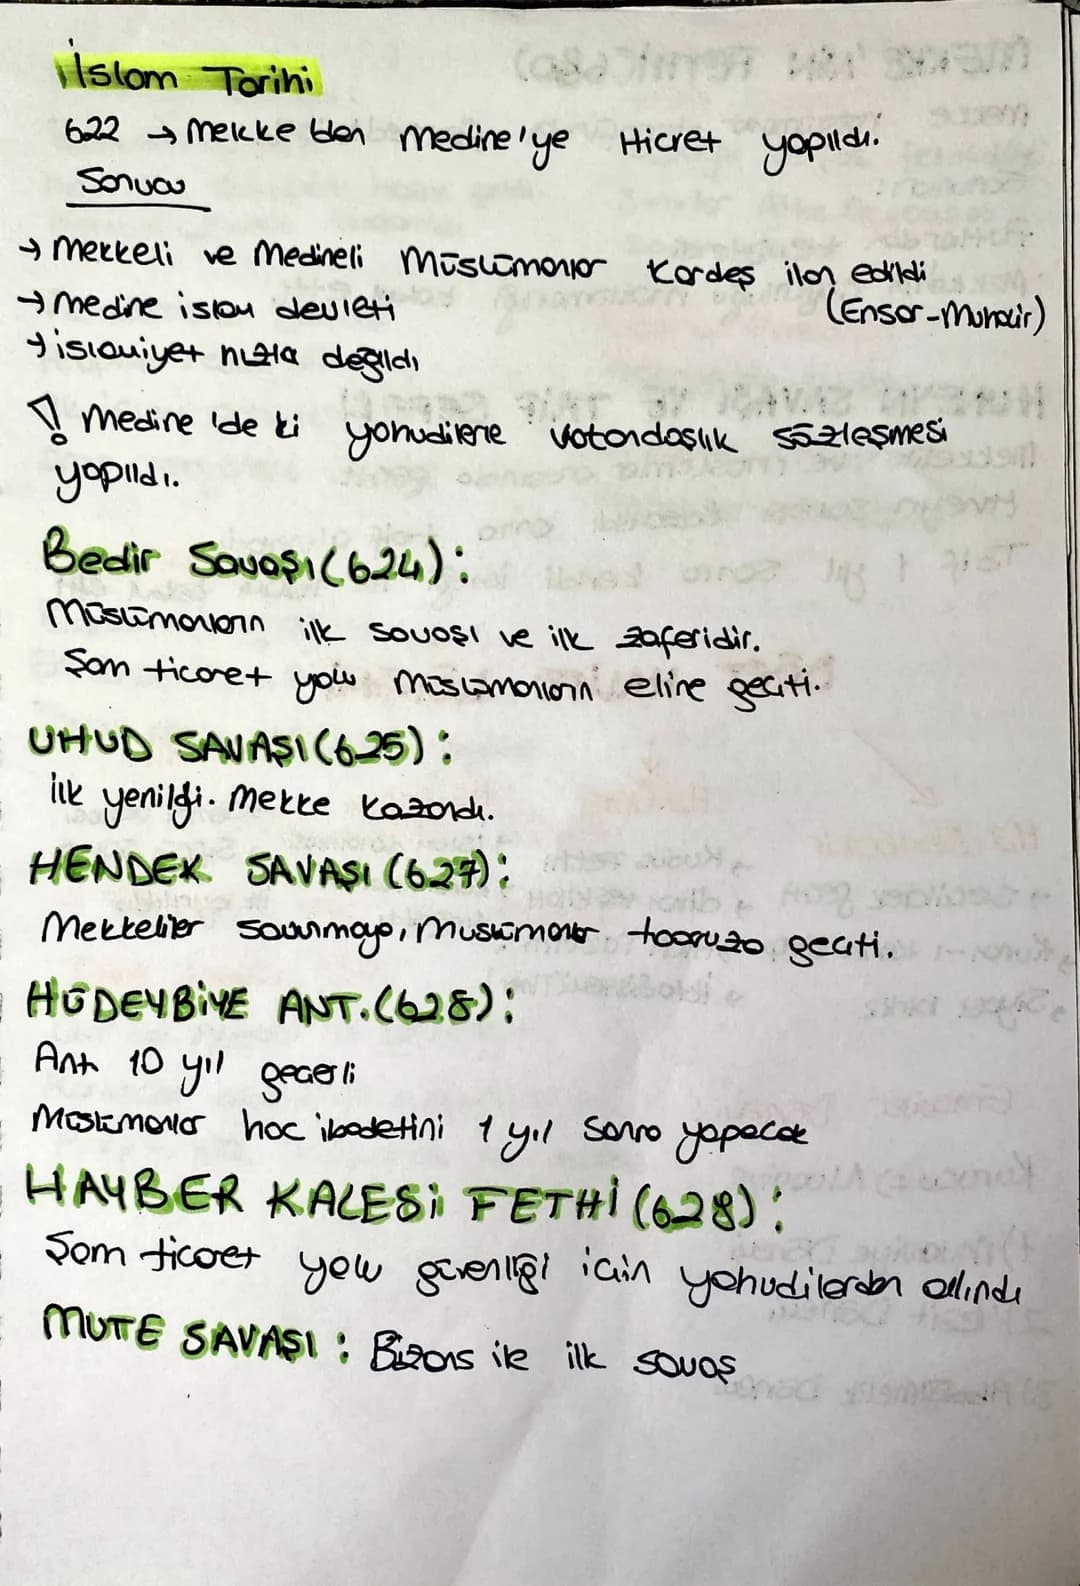 İslam Tarihi
622 → Mekke'den Medine'ye Hicret yapıldı.
Sonucu
→ Mekkeli ve Medineli Müslümanlar Kardeş ilan edildi
(Ensar-Muhacir)
→ Medine islam devleti
→ islamiyet hızla değildı
! Medine 'de ki yahudilerle vatandaşlık sözleşmesi
yapıldı.
Bedir Savaşı (624):
Müslümanların ilk savaşı ve ilk zaferidir.
Şam ticaret yolu müslümanların eline geçti.
UHUD SAVAŞI (625):
ilk yenilgi. Mekke kazandı.
HENDEK SAVAŞI (627):
Mekkeliler savunmaya, Müslümanlar taaruza geçti.
HÜDEYBİYE ANT. (628):
Ant 10 yıl geçerli
Müslümanlar hac ibadetini 1 yıl sonra yapacak
HAYBER KALESİ FETHİ (628):
Şam ticaret yolu güvenliği için yahudilerden alındı
MUTE SAVAŞI : Bizans ile ilk savaş